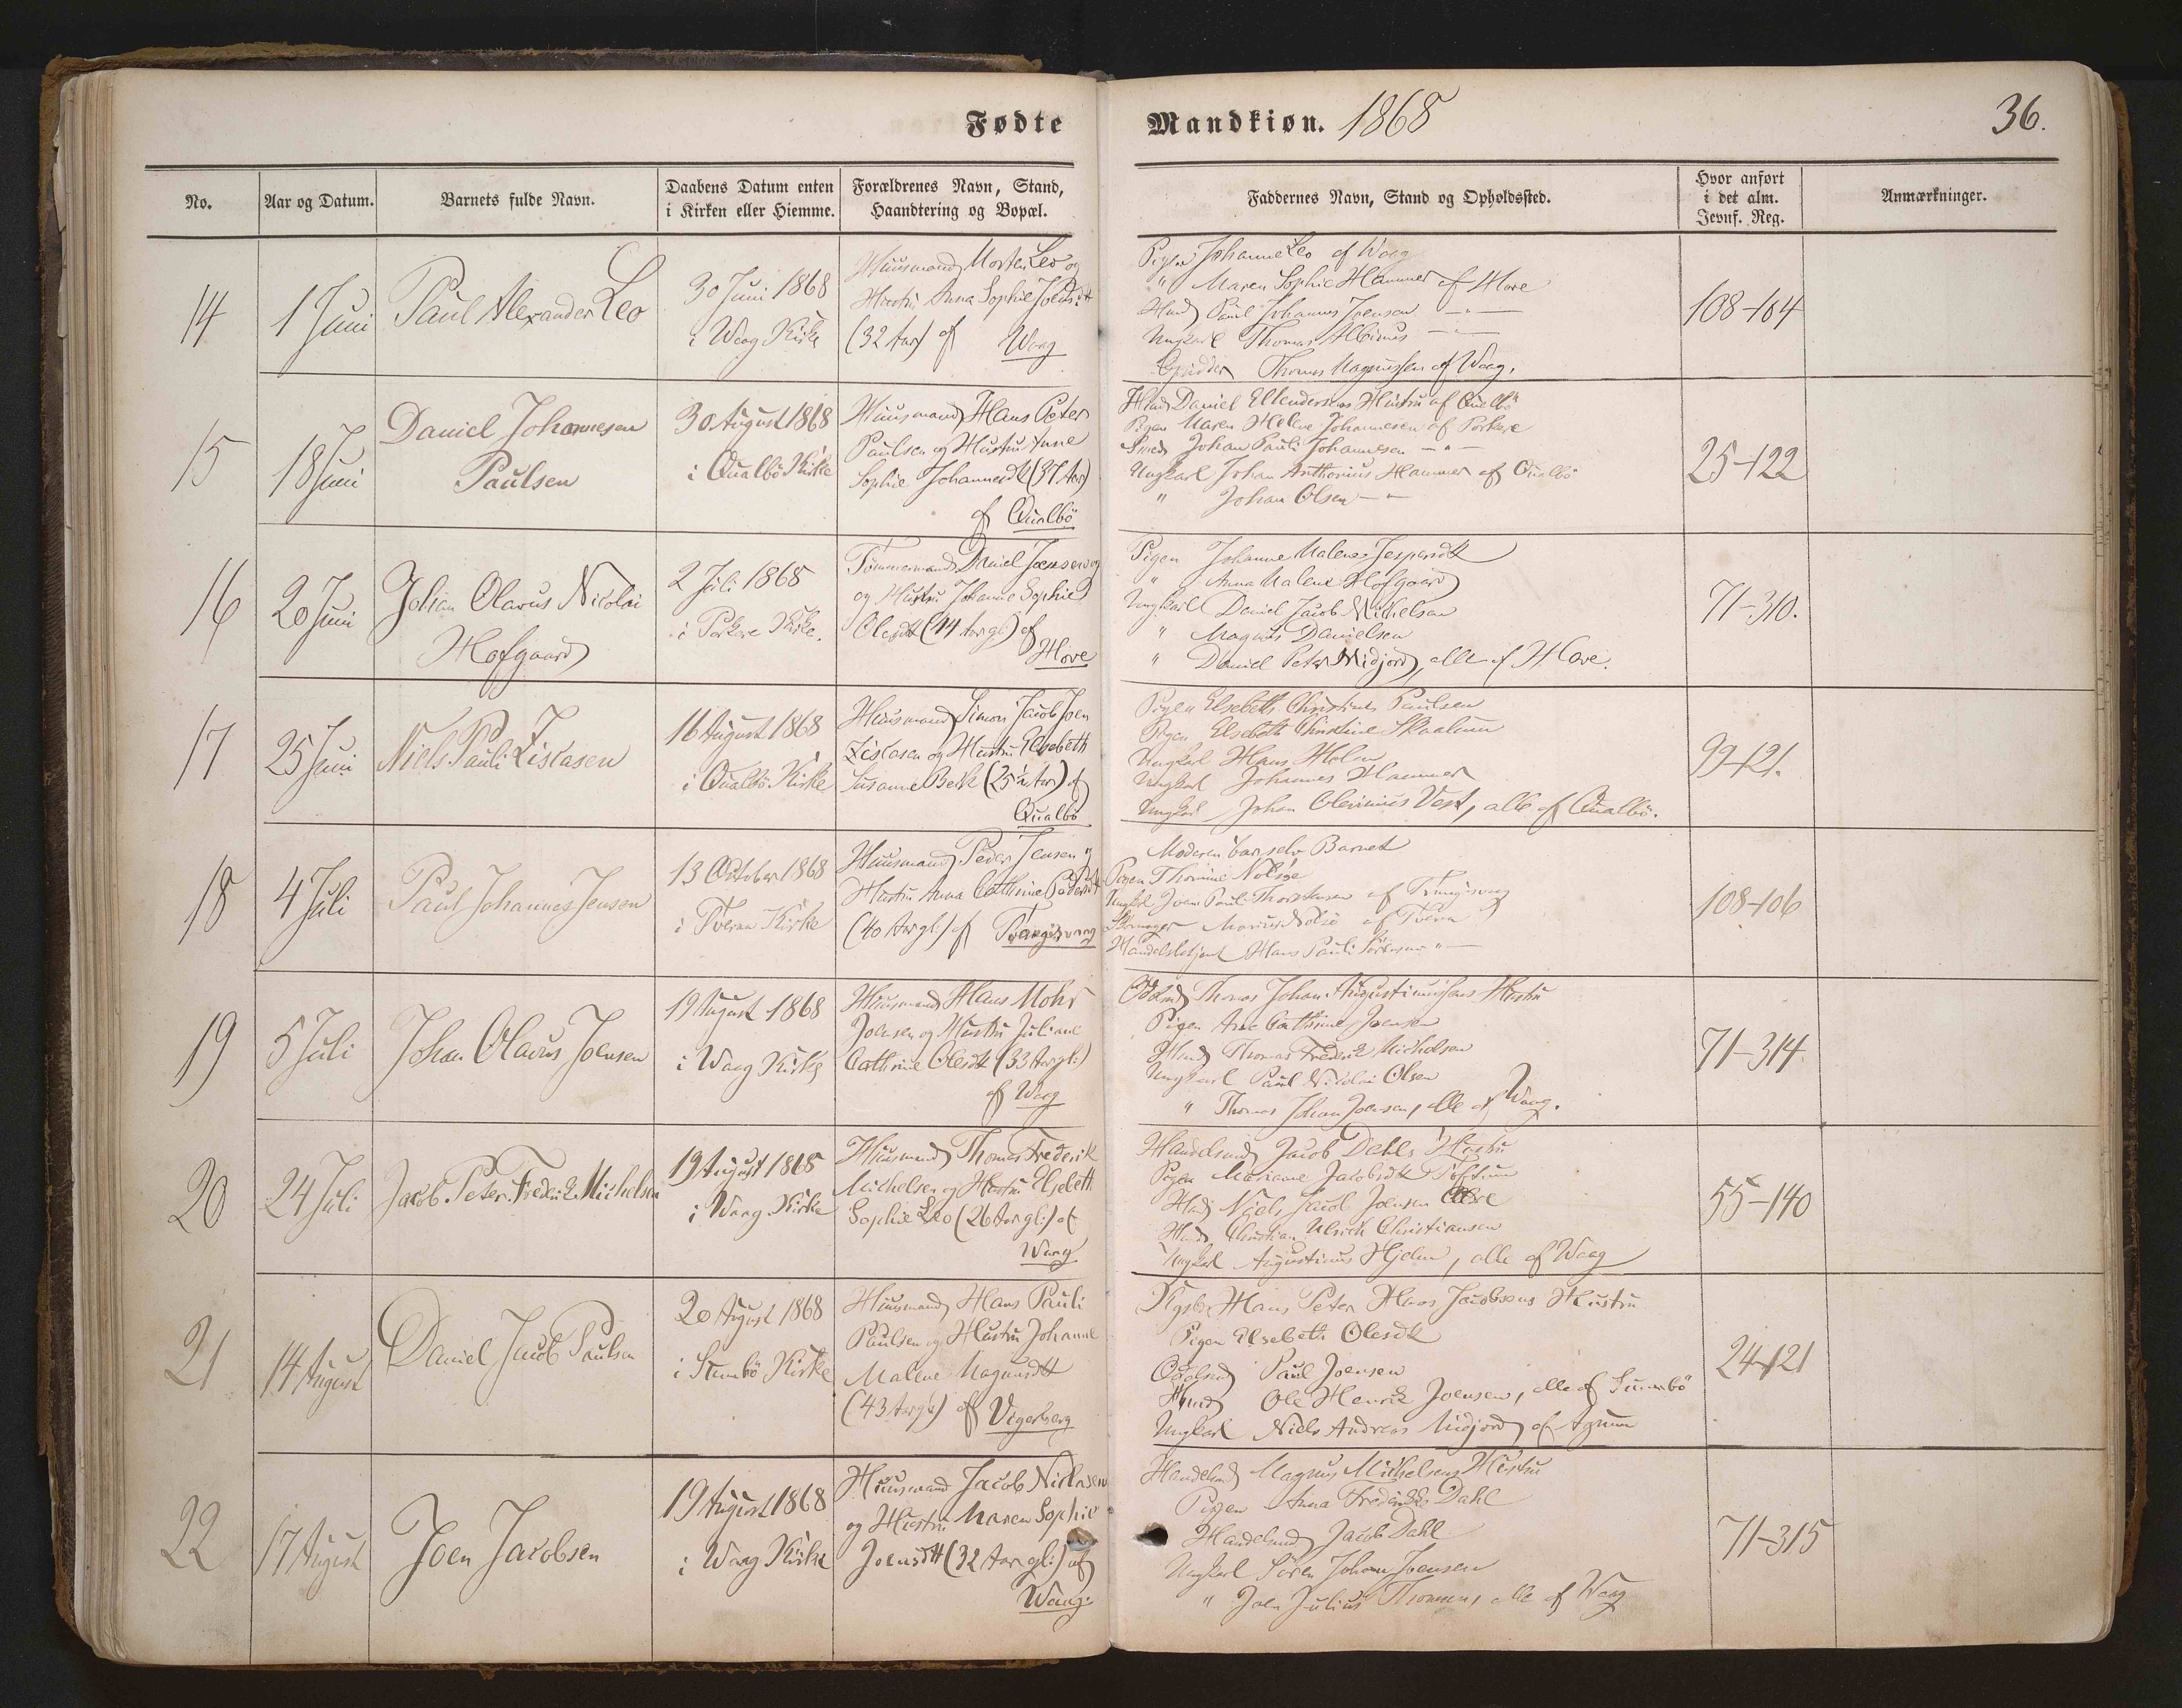 Fødte
Mandkiøn. 1868
36.
No.
Aar og Datum.
Barnets fulde Navn.
Daabens Datum enten
i Kirken eller Hiemme.
Forældrenes Navn, Stand,
Haandtering og Bopæl.
Faddernes Navn, Stand og Opholdssted.
Hvor anført
i det alm.
Jevnf. Reg.
Anmærkninger.
14
1 Juni
Paul Alexander Leo
30 Juni 1868
i Waag Kirke
Huusmand Morten Leo og
Hustru Anna Sophie
(32 Aar) af Waag
Pigen Johanne Leo af Waag
" Maren Sophie Hammer af Hove
Hmd Paul Johannes Joensen — " —
Ungkarl Thomas Albinus — " —
Thomas Magnussen af Waag.
108-104
15
18 Juni
Daniel Johannesen
Paulsen
30 August 1868
i Qualbø Kirke
Huusmand Hans Peter
Paulsen og Hustru Anne
Sophie Johannesdtt (37 Aar)
af Qualbö
Hmd Daniel Ellendersens Hustru af Qualbö
Pigen Maren Helene Johannesen af Porkere
Smed Johan Pauli Johannesen — " —
Ungkarl Johan Anthonius Hammer af Qualbö
" Johan Olsen — " —
25-122
16
20 Juni
Johan Olavus Nicolai
Hofgaard
2 Juli 1868
i Porkere Kirke.
Tömmermand Daniel Joensen og
og Hustru Johanne Sophie
Olesdtt (44 Aar gl) af
Hove
Pigen Johanne Malene Jespersdtt
" Anna Malene Hofgaard
Ungkarl Daniel Jacob Michelsen
" Magnus Danielsen
" Daniel Peter Midjord, alle af Hove.
71-310.
17
25 Juni
Niels Pauli Ziskasen
16 August 1868
i Qualbö Kirke
Huusmand Simon Jacob Joen
Ziskasen og Hustru Elsebeth
Susanne Beck (25½ Aar) af
Qualbö
Pigen Elsebeth Christine Paulsen
Pigen Elsebeth Christine Skaalum
Ungkarl Hans Holm
Ungkarl Johannes Hammer
Ungkarl Johan Clerinius Vest, alle af Qualbö.
99-121.
18
4 Juli
Paul Johannes Jensen
13 October 1868
i Tveraa Kirke
Huusmand Peder Jensen og
Hustru Anna Cathrine Pedersdtt
(40 Aar gl.) af Trangisvaag
Moderen bar selv Barnet
Pigen Thomine Nolsöe
Ungkl Joen Pauli Thorsteinsen af Trangisvaag
Skomager Marius Nolsö af Tveraa
Handelsbetjent Hans Pauli — " —
108-106
19
5 Juli
Johan Olavus Joensen
19 August 1868
i Waag Kirke
Huusmand Hans Mohr
Joensen og Hustru Juliane
Cathrine Olesdtt (33 Aar gl:)
af Waag
Odelsmd Thomas Johan Augustinussens Hustru
Pigen Ane Cathrine Joensen
Hmd Thomas Frederik Michelsen
Ungkarl Paul Nicolai Olsen
" Thomas Johan Joensen, alle af Waag.
71-314
20
24 Juli
Jacob Peter Frederik Michelsen
19 August 1868
i Waag Kirke
Huusmand Thomas Frederik
Michelsen og Hustru Elsebeth
Sophie Leo (26 Aar gl:) af
Waag
Handelsmd Jacob Dahls Hustru
Pigen Mariane Jacobsdtt Toftum
Hmd Niels Jacob Joensen
Hmd Christian Ulrich Christiansen
Ungkarl Augustinus Hjelm, alle af Waag
55-140
21
14 August
Daniel Jacob Paulsen
20 August 1868
i Sumbö Kirke
Huusmand Hans Pauli
Paulsen og Hustru Johanne
Malene Magnusdtt
(43 Aar gl.) af Vigerberg
Kgsbd Hans Peter Hans Jacobsens Hustru
Pigen Elsebeth Olesdtt
Odelsmd Paul Joensen
Hmd Ole Henrik Joensen, alle af Sumbö
Ungkarl Niels Andreas Midjord af Agrum
24-121
22
17 August
Joen Jacobsen
19 August 1868
i Waag Kirke
Huusmand Jacob Niclasen
og Hustru Maren Sophie
Joensdtt (32 Aar gl:) af
Waag.
Handelsmd Magnus Michelsens Hustru
Pigen Anna Fredrikke Dahl
Handelsmd Jacob Dahl
Ungkarl Sören Johan Joensen
" Joen Julius Thomsen, alle af Waag
71-315